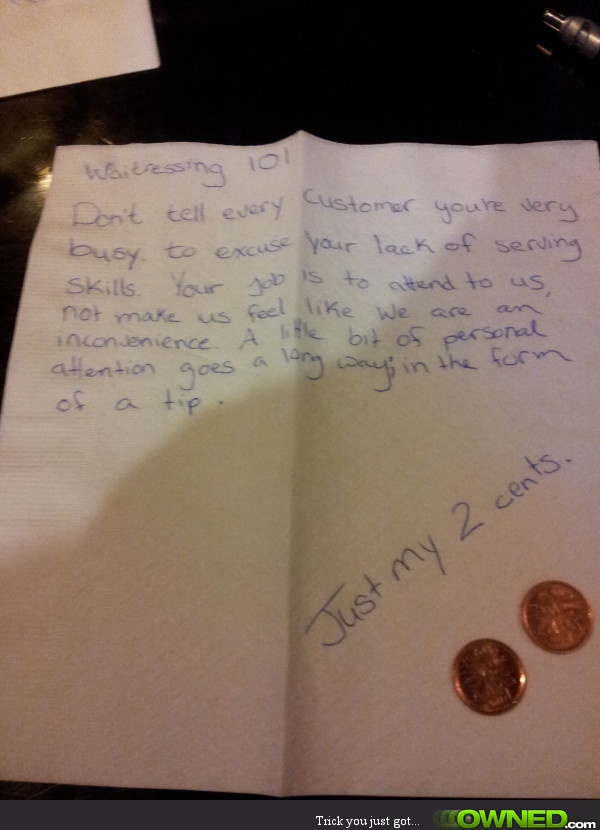 Waitressing 101
Don't tell every customer you're very
busy. to excuse your lack of serving
skills. Your job is to attend to us,
not make us feel like we are an
inconvenience. A little bit of personal
attention goes a long way; in the form
of a tip.
Just my 2 cents.
Trick you just got... OWNED.com